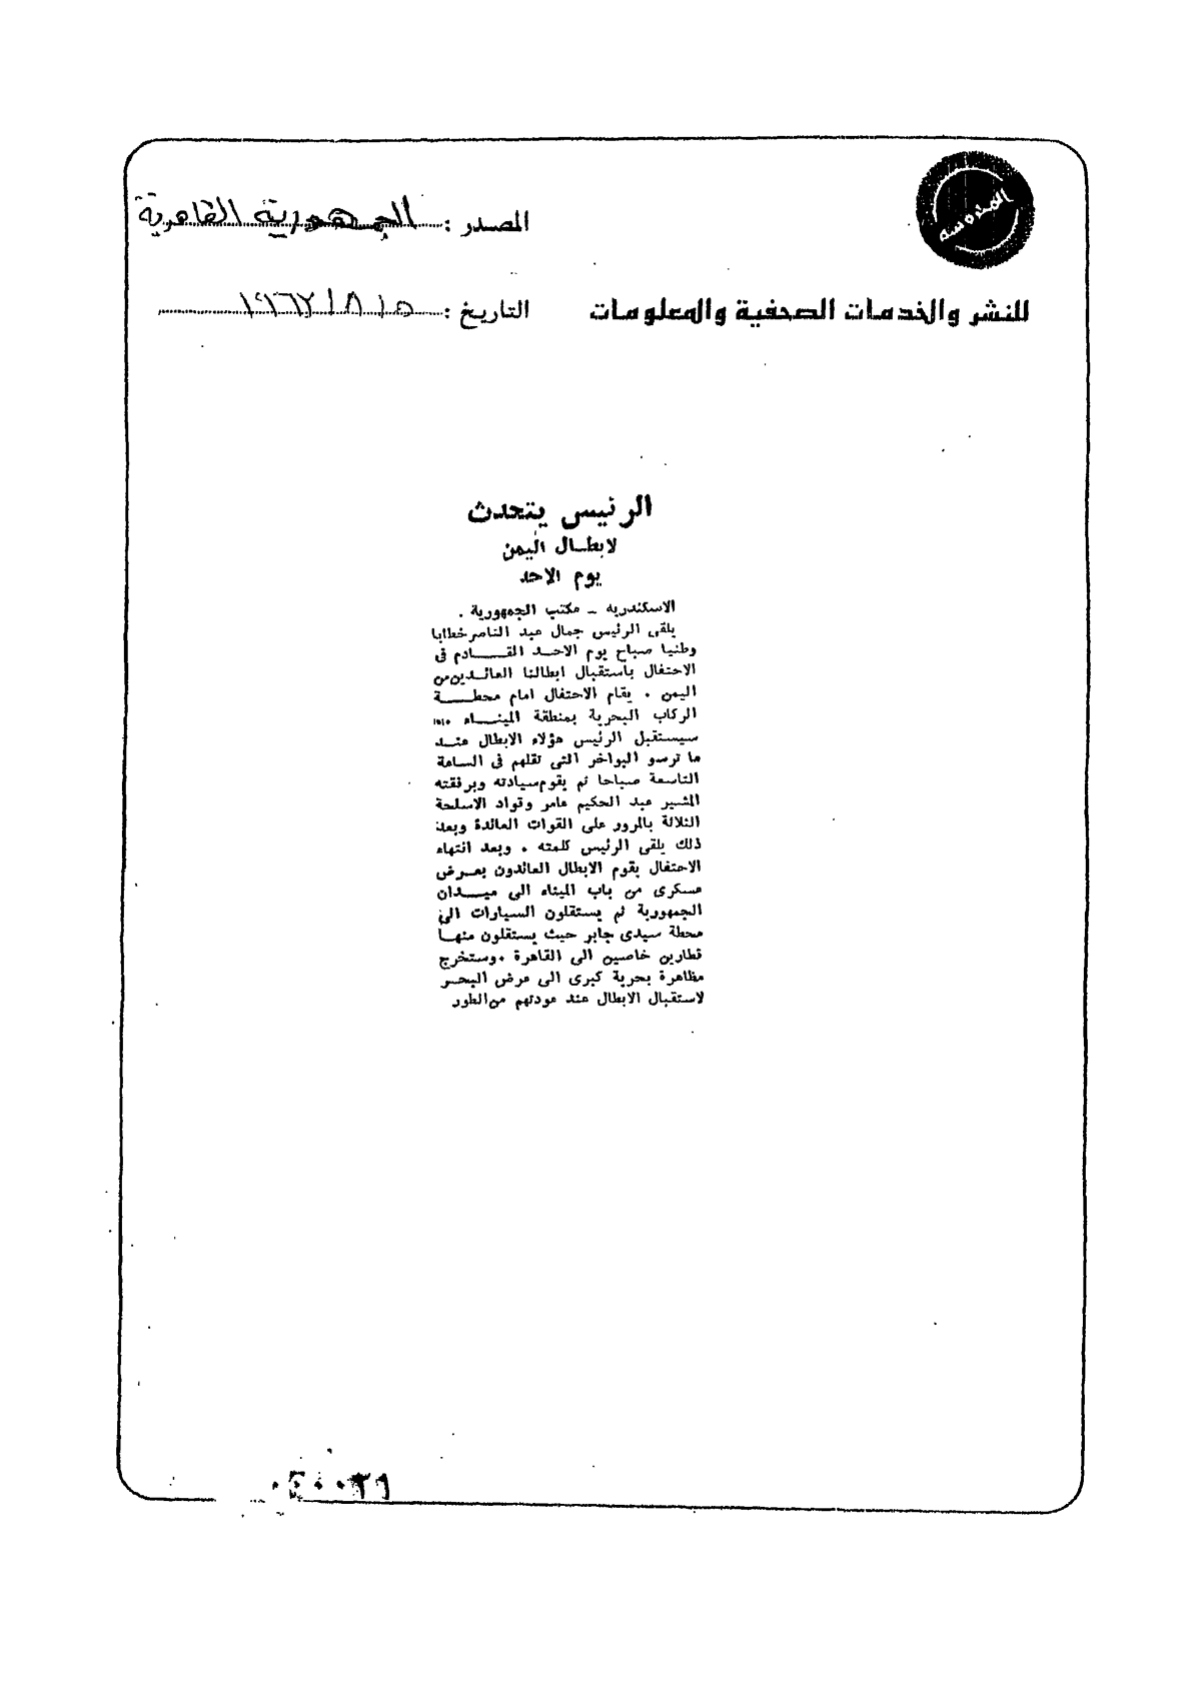 المحروسة
المصدر : الجمهورية القاهرية
للنشر والخدمات الصحفية والمعلومات
التاريخ : ١٩٦٣/٨/٥
الرئيس يتحدث
لابطال اليمن
يوم الاحد
الاسكندرية - مكتب الجمهورية .
يلقى الرئيس جمال عبد الناصر خطابا
وطنيا صباح يوم الاحد القادم فى
الاحتفال باستقبال ابطالنا العائدين من
اليمن . يقام الاحتفال امام محطة
الركاب البحرية بمنطقة الميناء
سيستقبل الرئيس هؤلاء الابطال عند
ما ترسو البواخر التى تقلهم فى الساعة
التاسعة صباحا ثم يقوم سيادته وبرفقته
المشير عبد الحكيم عامر وقواد الاسلحة
الثلاثة بالمرور على القوات العائدة وبعد
ذلك يلقى الرئيس كلمته . وبعد انتهاء
الاحتفال يقوم الابطال العائدون بعرض
عسكرى من باب الميناء الى ميدان
الجمهورية ثم يستقلون السيارات الى
محطة سيدى جابر حيث يستقلون منها
قطارين خاصين الى القاهرة . وستخرج
مظاهرة بحرية كبرى الى عرض البحر
لاستقبال الابطال عند عودتهم من الطور